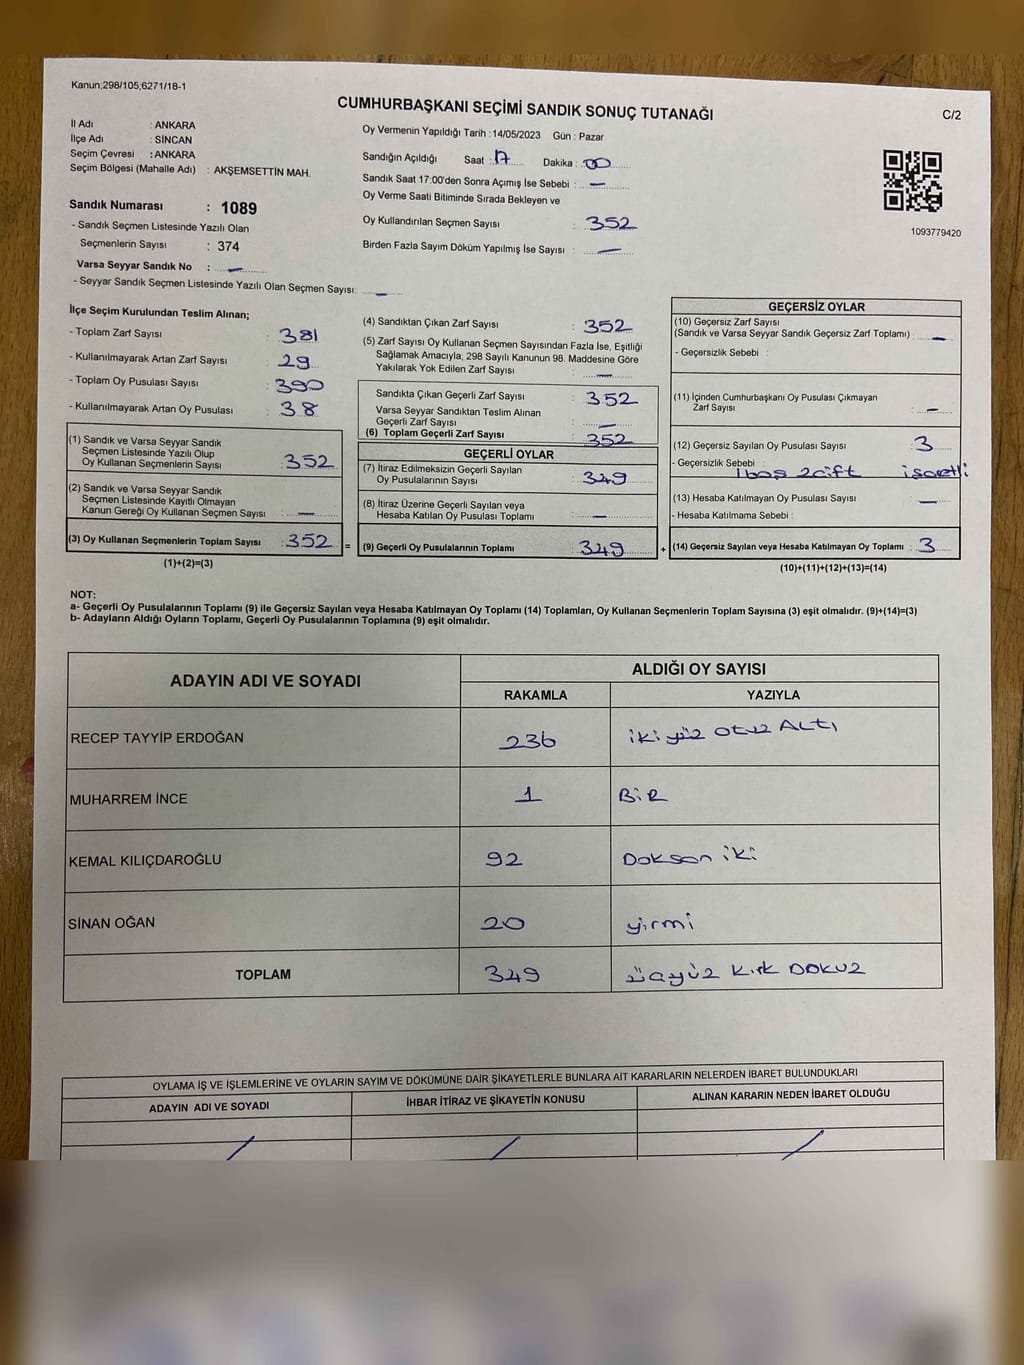 Kanun;298/105;6271/18-1
CUMHURBAŞKANI SEÇİMİ SANDIK SONUÇ TUTANAĞI
C/2
İl Adı : ANKARA
İlçe Adı : SİNCAN
Seçim Çevresi : ANKARA
Seçim Bölgesi (Mahalle Adı) : AKŞEMSETTİN MAH.
Sandık Numarası : 1089
- Sandık Seçmen Listesinde Yazılı Olan
Seçmenlerin Sayısı : 374
Varsa Seyyar Sandık No : —
- Seyyar Sandık Seçmen Listesinde Yazılı Olan Seçmen Sayısı: —
Oy Vermenin Yapıldığı Tarih : 14/05/2023 Gün : Pazar
Sandığın Açıldığı Saat : 17 Dakika : 00
Sandık Saat 17:00'den Sonra Açımış İse Sebebi : —
Oy Verme Saati Bitiminde Sırada Bekleyen ve
Oy Kullandırılan Seçmen Sayısı : 352
Birden Fazla Sayım Döküm Yapılmış İse Sayısı : —
1093779420
İlçe Seçim Kurulundan Teslim Alınan;
- Toplam Zarf Sayısı : 381
- Kullanılmayarak Artan Zarf Sayısı : 29
- Toplam Oy Pusulası Sayısı : 390
- Kullanılmayarak Artan Oy Pusulası : 38
(1) Sandık ve Varsa Seyyar Sandık
Seçmen Listesinde Yazılı Olup
Oy Kullanan Seçmenlerin Sayısı : 352
(2) Sandık ve Varsa Seyyar Sandık
Seçmen Listesinde Kayıtlı Olmayan
Kanun Gereği Oy Kullanan Seçmen Sayısı : —
(3) Oy Kullanan Seçmenlerin Toplam Sayısı : 352 =
(1)+(2)=(3)
(4) Sandıktan Çıkan Zarf Sayısı : 352
(5) Zarf Sayısı Oy Kullanan Seçmen Sayısından Fazla İse, Eşitliği
Sağlamak Amacıyla, 298 Sayılı Kanunun 98. Maddesine Göre
Yakılarak Yok Edilen Zarf Sayısı : —
Sandıkta Çıkan Geçerli Zarf Sayısı : 352
Varsa Seyyar Sandıktan Teslim Alınan
Geçerli Zarf Sayısı : —
(6) Toplam Geçerli Zarf Sayısı : 352
GEÇERLİ OYLAR
(7) İtiraz Edilmeksizin Geçerli Sayılan
Oy Pusulalarının Sayısı : 349
(8) İtiraz Üzerine Geçerli Sayılan veya
Hesaba Katılan Oy Pusulası Toplamı : —
(9) Geçerli Oy Pusulalarının Toplamı : 349 +
GEÇERSİZ OYLAR
(10) Geçersiz Zarf Sayısı
(Sandık ve Varsa Seyyar Sandık Geçersiz Zarf Toplamı) : —
- Geçersizlik Sebebi :
(11) İçinden Cumhurbaşkanı Oy Pusulası Çıkmayan
Zarf Sayısı : —
(12) Geçersiz Sayılan Oy Pusulası Sayısı : 3
- Geçersizlik Sebebi : 1boş 2çift işaretli
(13) Hesaba Katılmayan Oy Pusulası Sayısı : —
- Hesaba Katılmama Sebebi :
(14) Geçersiz Sayılan veya Hesaba Katılmayan Oy Toplamı : 3
(10)+(11)+(12)+(13)=(14)
NOT:
a- Geçerli Oy Pusulalarının Toplamı (9) ile Geçersiz Sayılan veya Hesaba Katılmayan Oy Toplamı (14) Toplamları, Oy Kullanan Seçmenlerin Toplam Sayısına (3) eşit olmalıdır. (9)+(14)=(3)
b- Adayların Aldığı Oyların Toplamı, Geçerli Oy Pusulalarının Toplamına (9) eşit olmalıdır.
ADAYIN ADI VE SOYADI
ALDIĞI OY SAYISI
RAKAMLA YAZIYLA
RECEP TAYYİP ERDOĞAN 236 iki yüz otuz ALTI
MUHARREM İNCE 1 BİR
KEMAL KILIÇDAROĞLU 92 Doksan iki
SİNAN OĞAN 20 yirmi
TOPLAM 349 üçyüz kırk DOKUZ
OYLAMA İŞ VE İŞLEMLERİNE VE OYLARIN SAYIM VE DÖKÜMÜNE DAİR ŞİKAYETLERLE BUNLARA AİT KARARLARIN NELERDEN İBARET BULUNDUKLARI
ADAYIN ADI VE SOYADI İHBAR İTİRAZ VE ŞİKAYETİN KONUSU ALINAN KARARIN NEDEN İBARET OLDUĞU